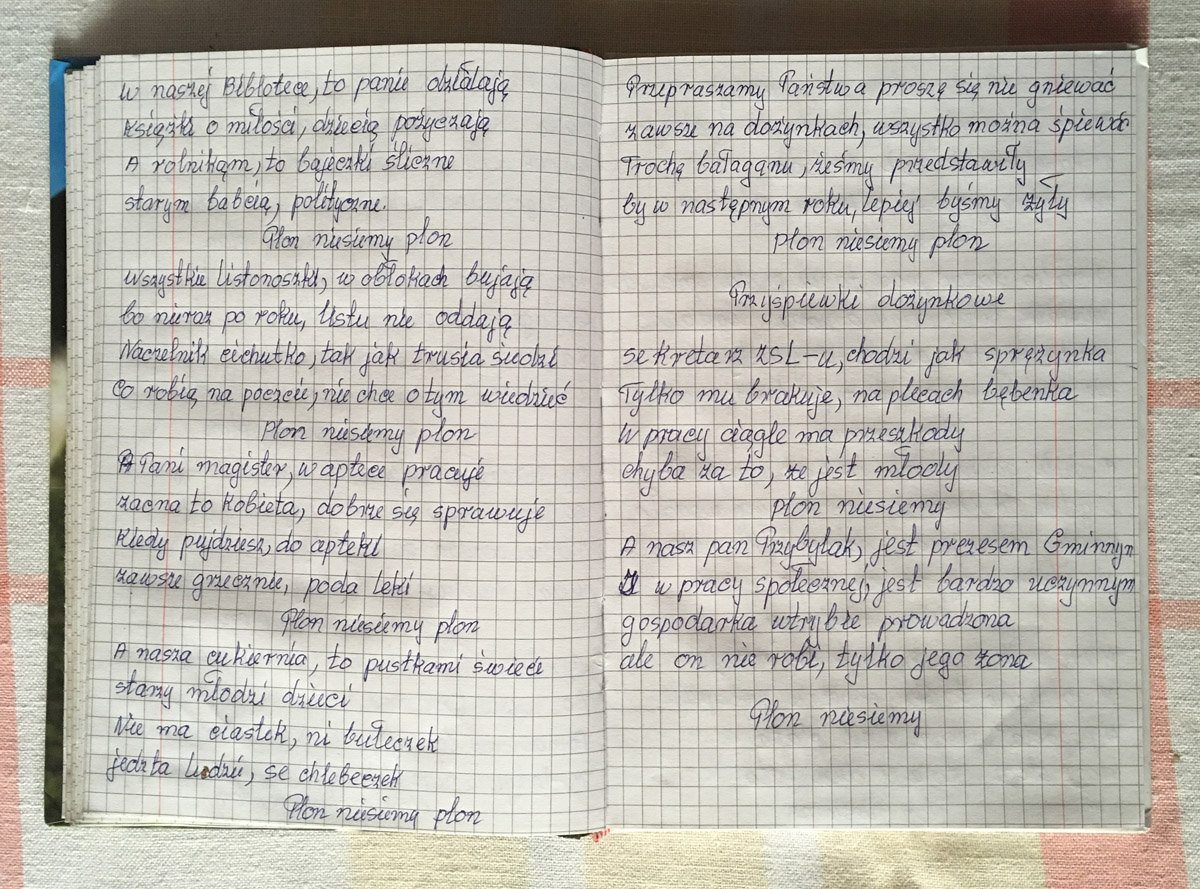 w naszej Biblotece, to panie działają
książki o miłości, dziecią pożyczają
A rolnikąm, to bajeczki śliczne
starym babcią, polityczne.
Plon niesiemy plon
wszystkie listonoszki, w obłokach bujają
bo nieraz po roku, listu nie oddają
Naczelnik cichutko, tak jak trusia siedzi
Co robią na poczcie, nie chce o tym wiedzieć
Plon niesiemy plon
A Pani magister, w aptece pracuje
zacna to kobieta, dobrze się sprawuje
Kiedy pujdziesz, do apteki
zawsze grzecznie, poda leki
Plon niesiemy plon
A nasza cukiernia, to pustkami świeci
starzy młodzi dzieci
Nie ma ciastek, ni bułeczek
jedzta ludzie, se chlebeczek
Plon niesiemy plon
Przepraszamy Państwa proszę się nie gniewać
zawsze na dożynkach, wszystko można śpiewać
Trochę bałaganu, żeśmy przedstawiły
by w następnym roku, lepiej byśmy żyły
Plon niesiemy plon
Przyśpiewki dożynkowe
sekretarz ZSL-u, chodzi jak sprężynka
Tylko mu brakuje, na plecach bębenka
W pracy ciągle ma przeszkody
chyba za to, że jest młody
plon niesiemy
A nasz pan Przybylak, jest prezesem Gminnym
w pracy społecznej, jest bardzo uczynnym
gospodarka wtrybie prowadzona
ale on nie robi, tylko jego żona
Plon niesiemy